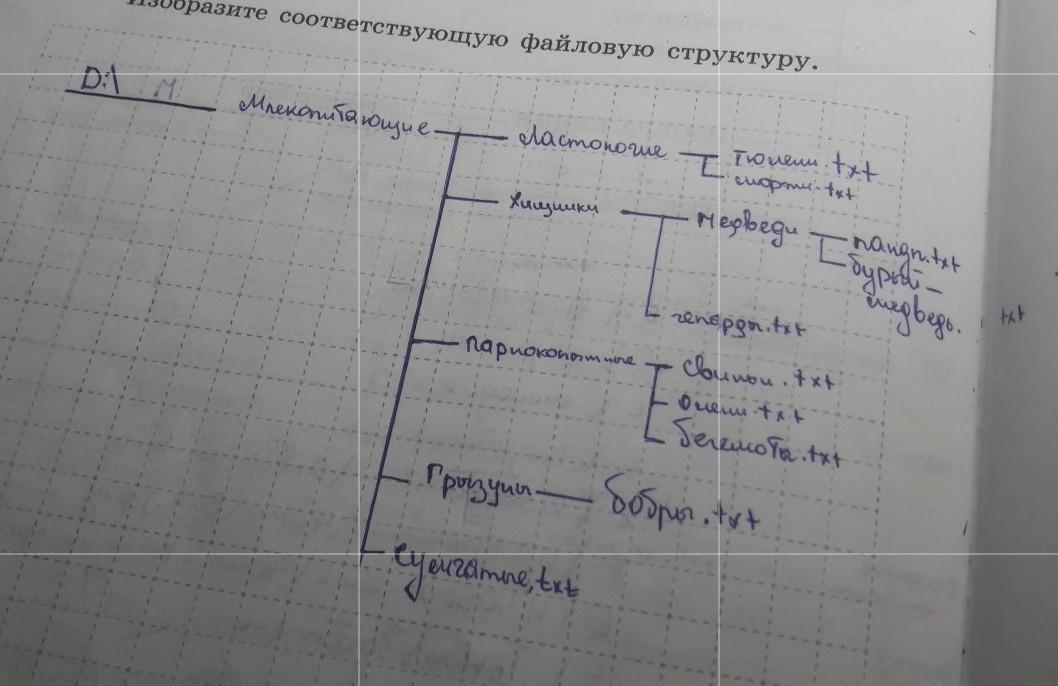 Изобразите соответствующую файловую структуру.
D:\ М
Млекопитающие Ластоногие тюлени.txt
моржи.txt
Хищники медведи панды.txt
бурый-
медведь. txt
гепарды.txt
парнокопытные свиньи.txt
олени.txt
бегемоты.txt
Грызуны бобры.txt
Сумчатые,txt